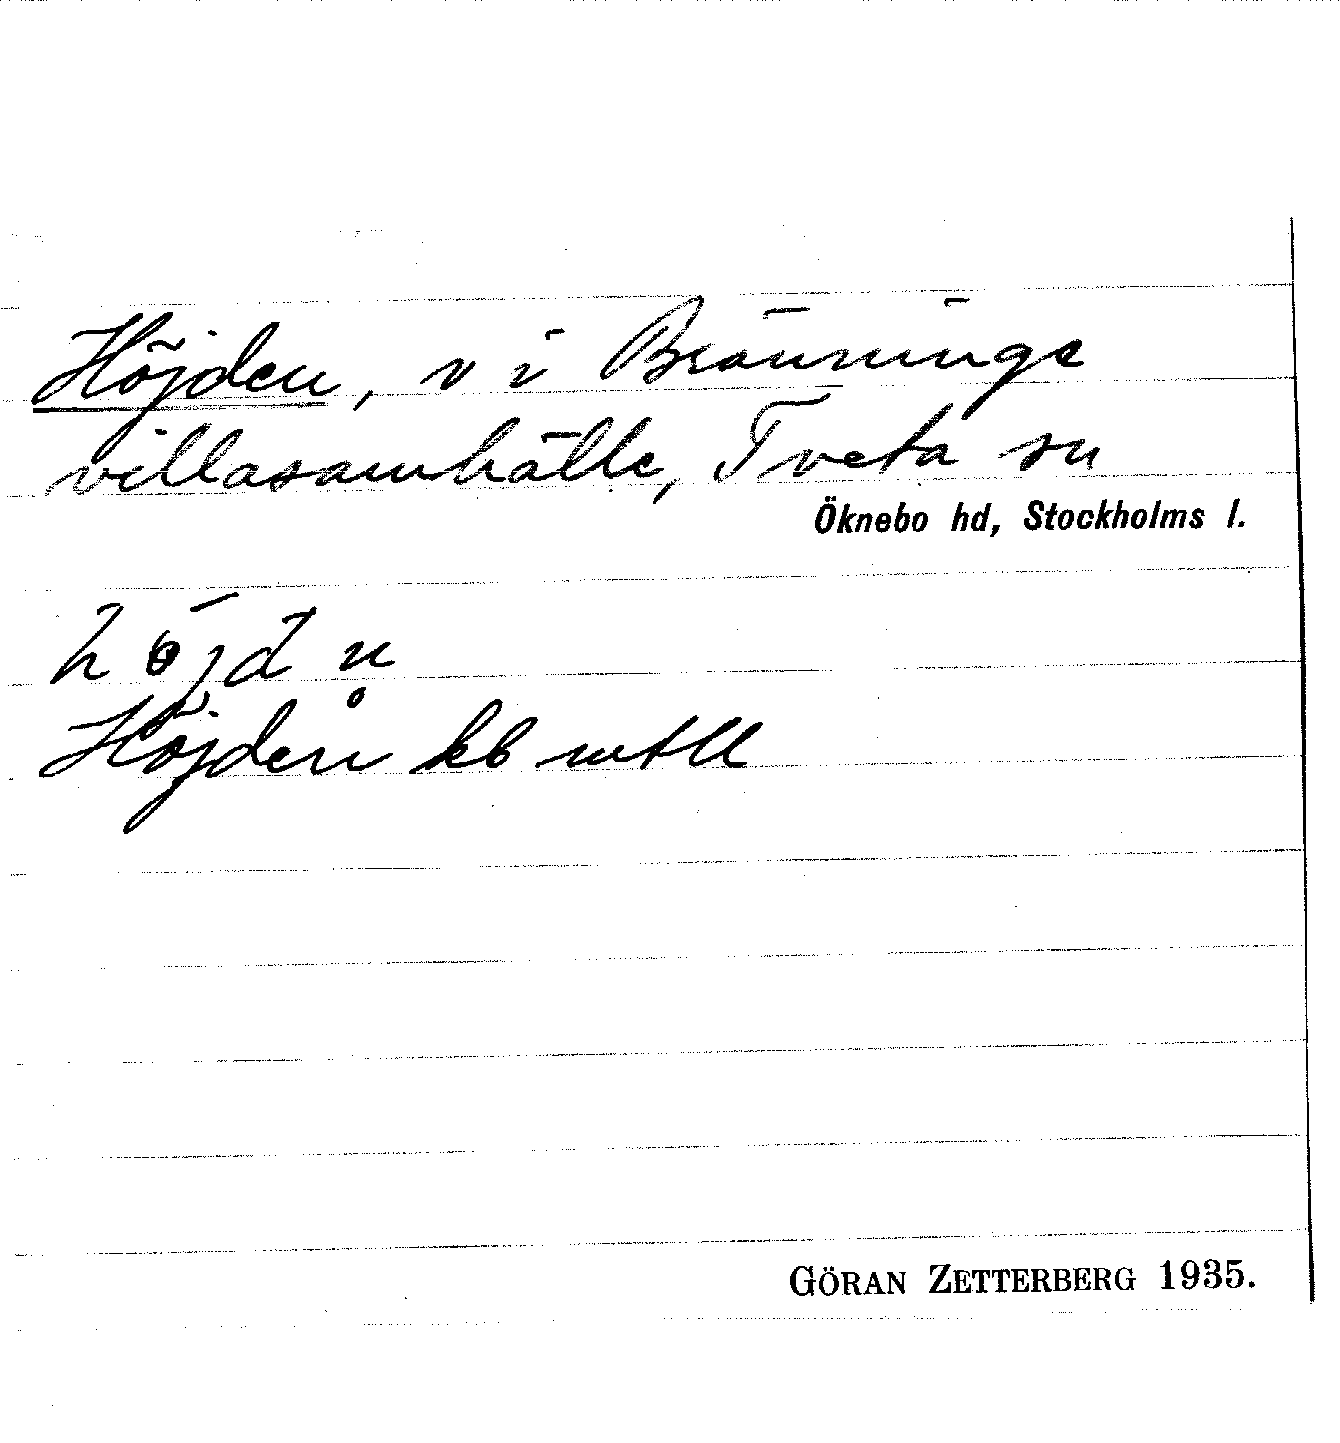 Höjden, v i Bränninge
villasamhälle, Tveta sn
Öknebo hd, Stockholms l.
höjd n̥
Höjden kb mtll
GÖRAN ZETTERBERG 1935.